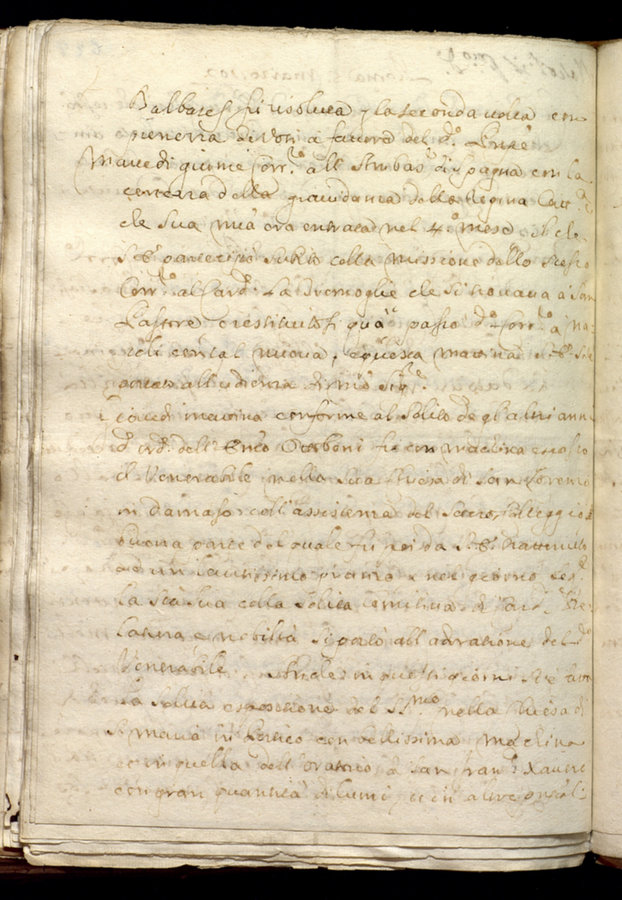 Balbases fu risoluta p la seconda uolta con
pienezza di Voti a fauore del d.º
Martedi giunse Corr.º all Ambas.re di Spagna con la
certezza della grauidanza della Regina Catt.ca
che Sua Mtà era entrata nel 4.º mese, il che
S. E. partecipò subito colla missione dello stesso
Corr.º al Card. La Tremoglie che si trouaua a San
Pastore e restituitosi quà passò d.º Corr.º a Na-
poli con tal nuoua, e questa mattina S. E. 
all udienza di Nrō Sig.re
Giouedi mattina conforme al solito de gl altri anni
d ord. dell Emō Ottoboni fu con machina esposto
il Venerabile nella sua Chiesa di San Lorenzo
in Damaso coll assistenza del Sacro Colleggio
buona parte del quale fu poi da S. E. trattenuto
ad un lautissimo pranzo e nel giorno
la Stà Sua colla solita comitiua di Card.
latura e nobiltà si portò all adoratione del d.º
Venerabile, in questi giorni si è
la solita espositione del SS.mo nella Chiesa di
S. Maria in Portico con bellissima machina
e in quella dell oratorio di San Fran.º Xauerio
con gran quantità di lumi, et in altre